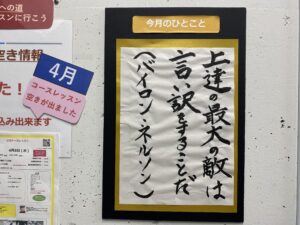 への道
スンに行こう
空き情報
た！
込み出来ます
4月
コースレッスン
空きが出ました
今月のひとこと
上達の最大の敵は
言い訳をすることだ
（バイロン・ネルソン）